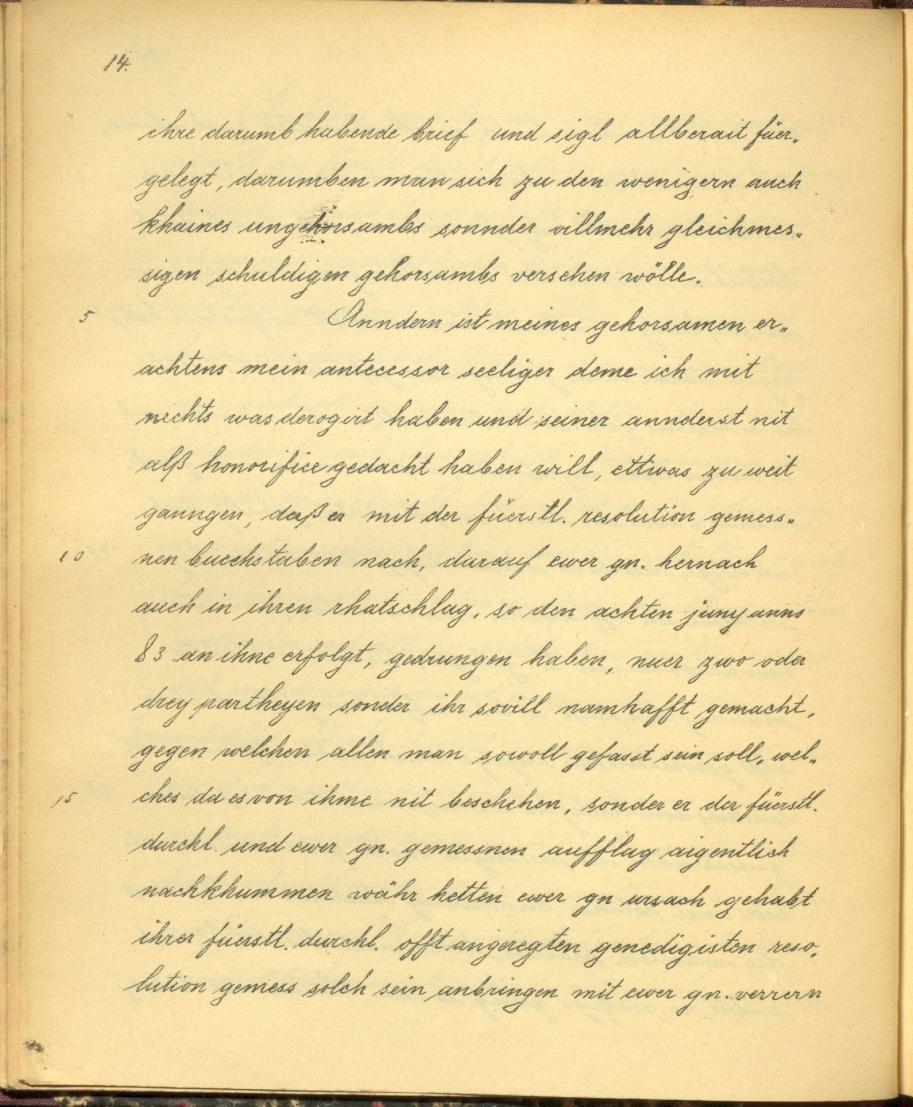 14.
ihre darumb habende brief und sigl allberait füer„
gelegt, darumben man sich zu den wenigern auch
khaines ungehorsambs sonnder villmehr gleichmes„
sigen schuldigen gehorsambs versehen wölle.
5 Anndern ist meines gehorsamen er„
achtens mein antecessor seeliger deme ich mit
nichts was derogirt haben und seiner annderst nit
alß honorifice gedacht haben will, ettwas zu weit
ganngen, daß er mit der füerstl. resolution gemess„
10 nen buechstaben nach, darauf ewer gn. hernach
auch in ihren rhatschlag, so den achten juny anno
83 an ihne erfolgt, gedrungen haben, nuer zwo oder
drey partheyen sonder ihr sovill namhafft gemacht,
gegen welchen allen man sowoll gefasst sein soll, wel„
15 ches da es von ihme nit beschehen, sonder er der füerstl.
durchl. und ewer gn. gemessnen aufflag aigentlich
nachkhummen währ hetten ewer gn ursach gehabt
ihrer füerstl. durchl. offt angeregten genedigisten reso„
lution gemess solch sein anbringen mit ewer gn. verrern